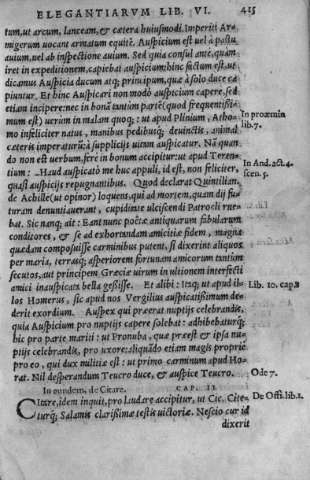 ELEGANTIARVM LIB. VI. 415
tum, ut arcum, lanceam, & cætera huiusmodi. Imperiti Ar-
migerum uocant armatum equitē. Auspicium est uel à pastu
auium, uel ab inspectione auium. Sed quia consul ante, quàm
iret in expeditionem, capiebat auspicium: hinc factum est, ut
dicamus Auspicia ducum atq; principum, quæ à solo duce ca
piuntur. Et hinc Auspicari non modò auspicium capere, sed
etiam incipere: nec in bonā tantùm partē (quod frequentissi-
mum est) uerum in malam quoq; : ut apud Plinium, Atho-
mo infeliciter natus, manibus pedibusq; deuinctis, animal
cæteris imperaturū: à supplicijs uitam auspicatur. Nā quan-
do non est uerbum, ferè in bonam accipitur: ut apud Teren-
tium : Haud auspicatò me huc appuli, id est, non feliciter,
quasi auspicijs repugnantibus. Quod declarat Quintilian.
de Achille (ut opinor) loquens, qui ad mortem, quam dij fu-
turam denuntiauerant, cupiditate ulciscendi Patrocli rue-
bat. Sic nanq; ait : Eant nunc poëtæ antiquarum fabularum
conditores, & se ad exhortandam amicitiæ fidem, magna
quædam composuisse carminibus putent, si dixerint aliquos
per maria, terrasq; asperiorem fortunam amicorum tantùm
secutos, aut principem Græciæ uirum in ultionem interfecti
amici inauspicata bella gessisse. Et alibi : Itaq; ut apud il-
los Homerus, sic apud nos Vergilius auspicatissimum de-
derit exordium. Auspex qui præerat nuptijs celebrandis,
quia Auspicium pro nuptijs capere solebat : adhibebaturq́;
hic pro parte mariti : ut Pronuba, quæ præest & ipsa nu-
ptijs celebrandis, pro uxore: aliquādo etiam magis propriè
pro eo, qui dux militiæ est : ut primo carminum apud Ho-
rat. Nil desperandum Teucro duce, & auspice Teucro.
In proœmio
lib. 7.
In And. act. 4.
scen. 5.
Lib. 10. cap. 1
Ode 7.
In eundem, de Citare. CAP. II.
Citare, idem inquit, pro Laudare accipitur, ut Cic. Cite-
turq́; Salamis clarissima testis uictoriæ. Nescio cur id
dixerit
De Offi. lib. 1.